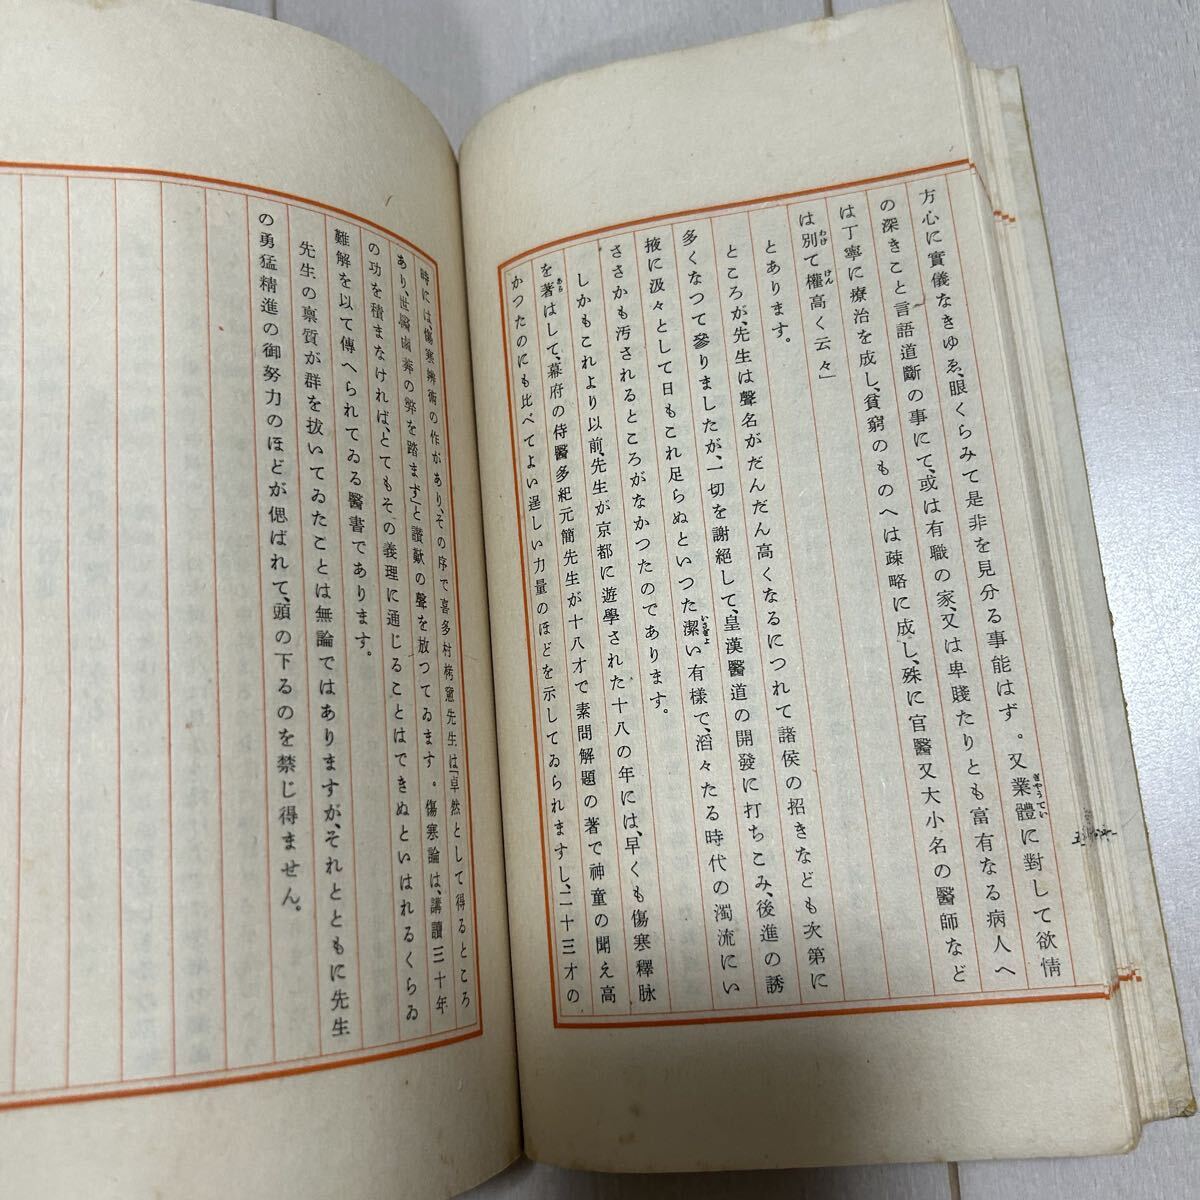 方心に實儀なきゆゑ、眼くらみて是非を見分る事能はず。又業體に對して欲情
の深きこと言語道斷の事にて、或は有職の家、又は卑賤たりとも富有なる病人へ
は丁寧に療治を成し、貧窮のものへは疎略に成し、殊に官醫又大小名の醫師など
は別て權高く云々」
とあります。
ところが、先生は聲名がだんだん高くなるにつれて諸侯の招きなども次第に
多くなつて參りましたが、一切を謝絕して、皇漢醫道の開發に打ちこみ、後進の誘
掖に汲々として日もこれ足らぬといつた潔い有樣で、滔々たる時代の濁流にい
ささかも汚されるところがなかつたのであります。
しかもこれより以前、先生が京都に遊學された十八の年には、早くも傷寒釋脉
を著はして、幕府の侍醫多紀元簡先生が十八才で素問解題の著で神童の聞え高
かつたのにも比べてよい逞しい力量のほどを示してゐられますし、二十三才の
時には、傷寒辨術の作があり、その序で喜多村栲窻先生は「卓然として得るところ
あり、世醫鹵莽の弊を踏まず」と讚歎の聲を放つてゐます。傷寒論は、講讀三十年
の功を積まなければ、とてもその義理に通じることはできぬといはれるくらゐ
難解を以て傳へられてゐる醫書であります。
先生の禀質が群を拔いてゐたことは無論ではありますが、それとともに先生
の勇猛精進の御努力のほどが偲ばれて、頭の下るのを禁じ得ません。